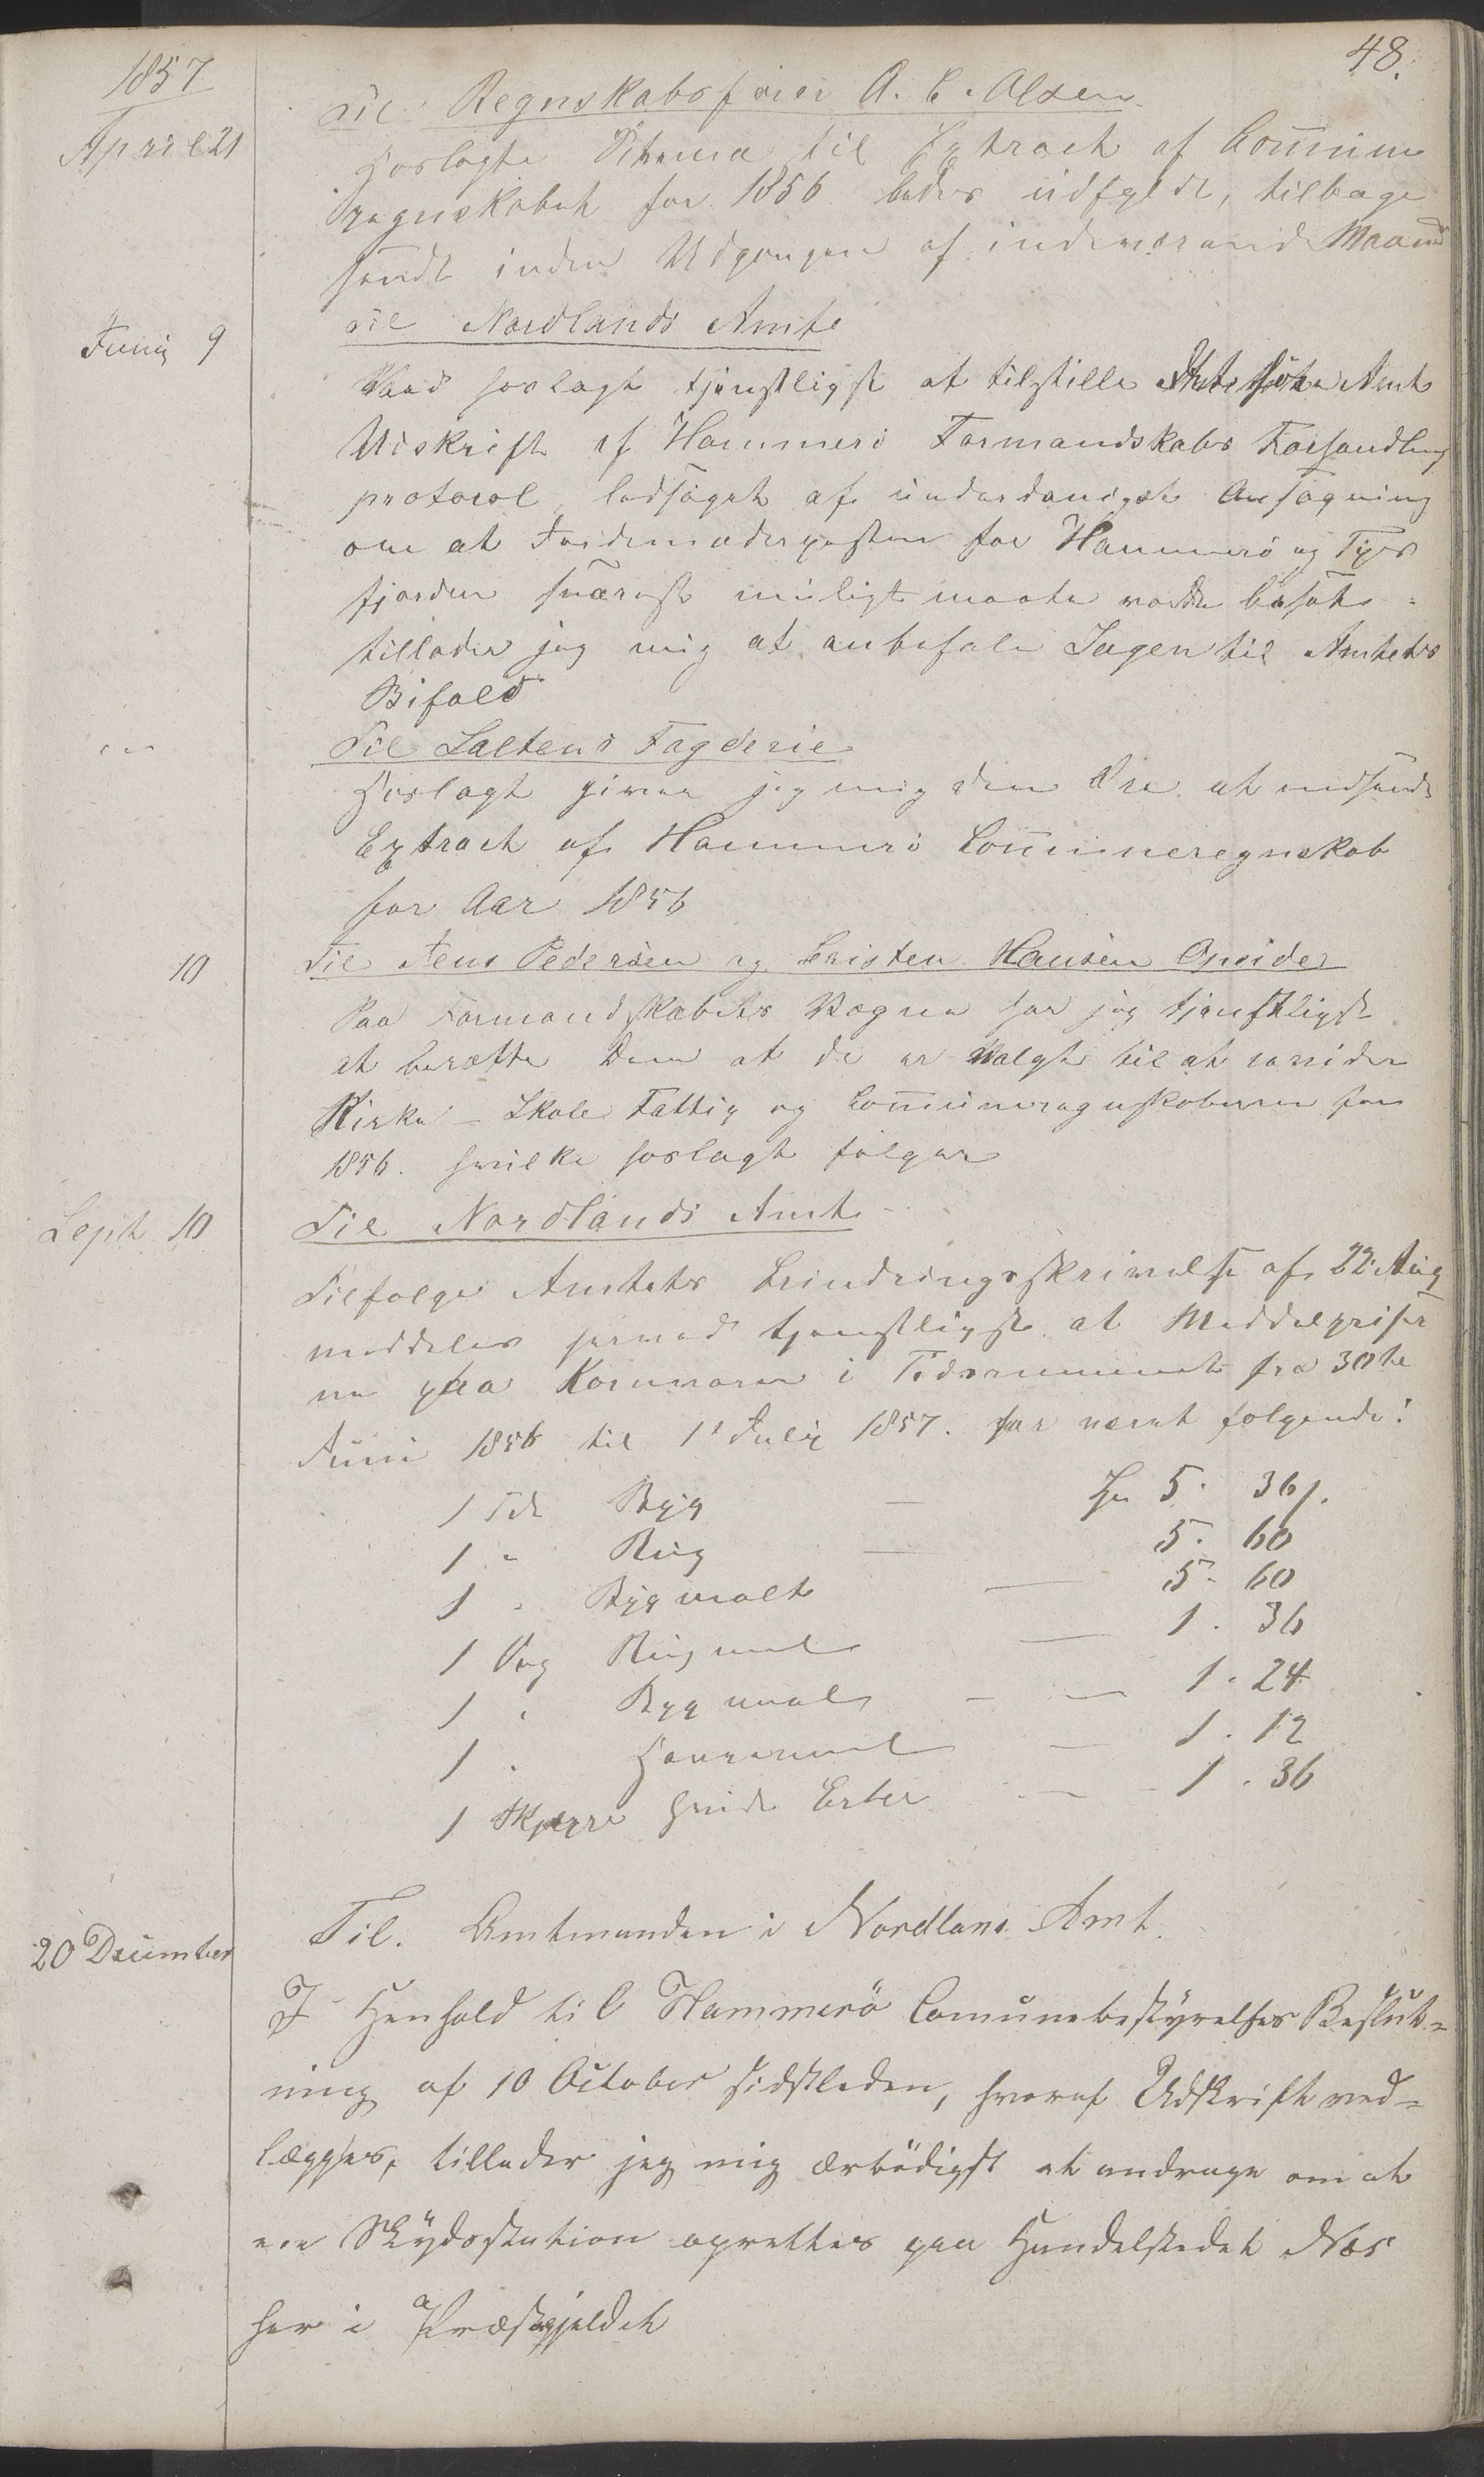 48.
1857
April 21
Til Regnskabsfører A. C. Olsen
Hoslagte Schema til Extract af Com̄une
regnskabet for 1856 bedes udfyldt, tilbage
sendt inden Udgangen af indeværende Maaned
Juny 9
Til Nordlands Amt
Ved hoslagt tjenstligst at tilstille Amt
Udskrift af Hammerö Formandskabs Forhandlings
protocol, ledsaget af underdanigst Ansøgning
om at Jordemoderposten for Hammerö og Tys
fjorden snarest muligt maatte vorde besat
tillader jeg mig at anbefale Sagen til Amtets
Bifald
Til Saltens Fogderie
Hoslagt giver jeg mig den Ære at nedsende
Extract af Hammerö Com̄uneregnskab
for Aar 1856
10
Til Jens Pedersen og Cristen Hansen Opeider
Paa Formandskabets Vegne har jeg tjenstligst
at berette Dem at de er Valgte til at revidere
Kirke- Skole Fattig og Com̄uneregnskaberne for
1856. hvilke hoslagt følger
Sept 10
Til Nordlands Amt
Tilfølge Amtets Erindringsskrivelse af 22 Aug
meddeles herved tjenstligst at Middelpriser
ne paa Kornvarer i Tidsrummet fra 30te
Juni 1856 til 1' July 1857. har været følgende:
1 Tde Byg — 5. 36
1 " Rug — 5. 60
1 " Bygmalt — 5. 60
1 Vog Rugmel — 1. 36
1 " Bygmel — 1. 24
1 " Havremel — 1. 12
1 Skjeppe hvide Erter — 1. 36
20 December
Til. Amtmanden i Nordlans Amt.
I Henhold til Hammerö Comunebestyrelses Beslut-
ning af 10 October sidstleden, hvoraf Udskrift ved-
lægges, tillader jeg mig ærbödigst at andrage om at
en Skydsstation oprettes paa Handelstedet Næs
her i Præstegjeldet